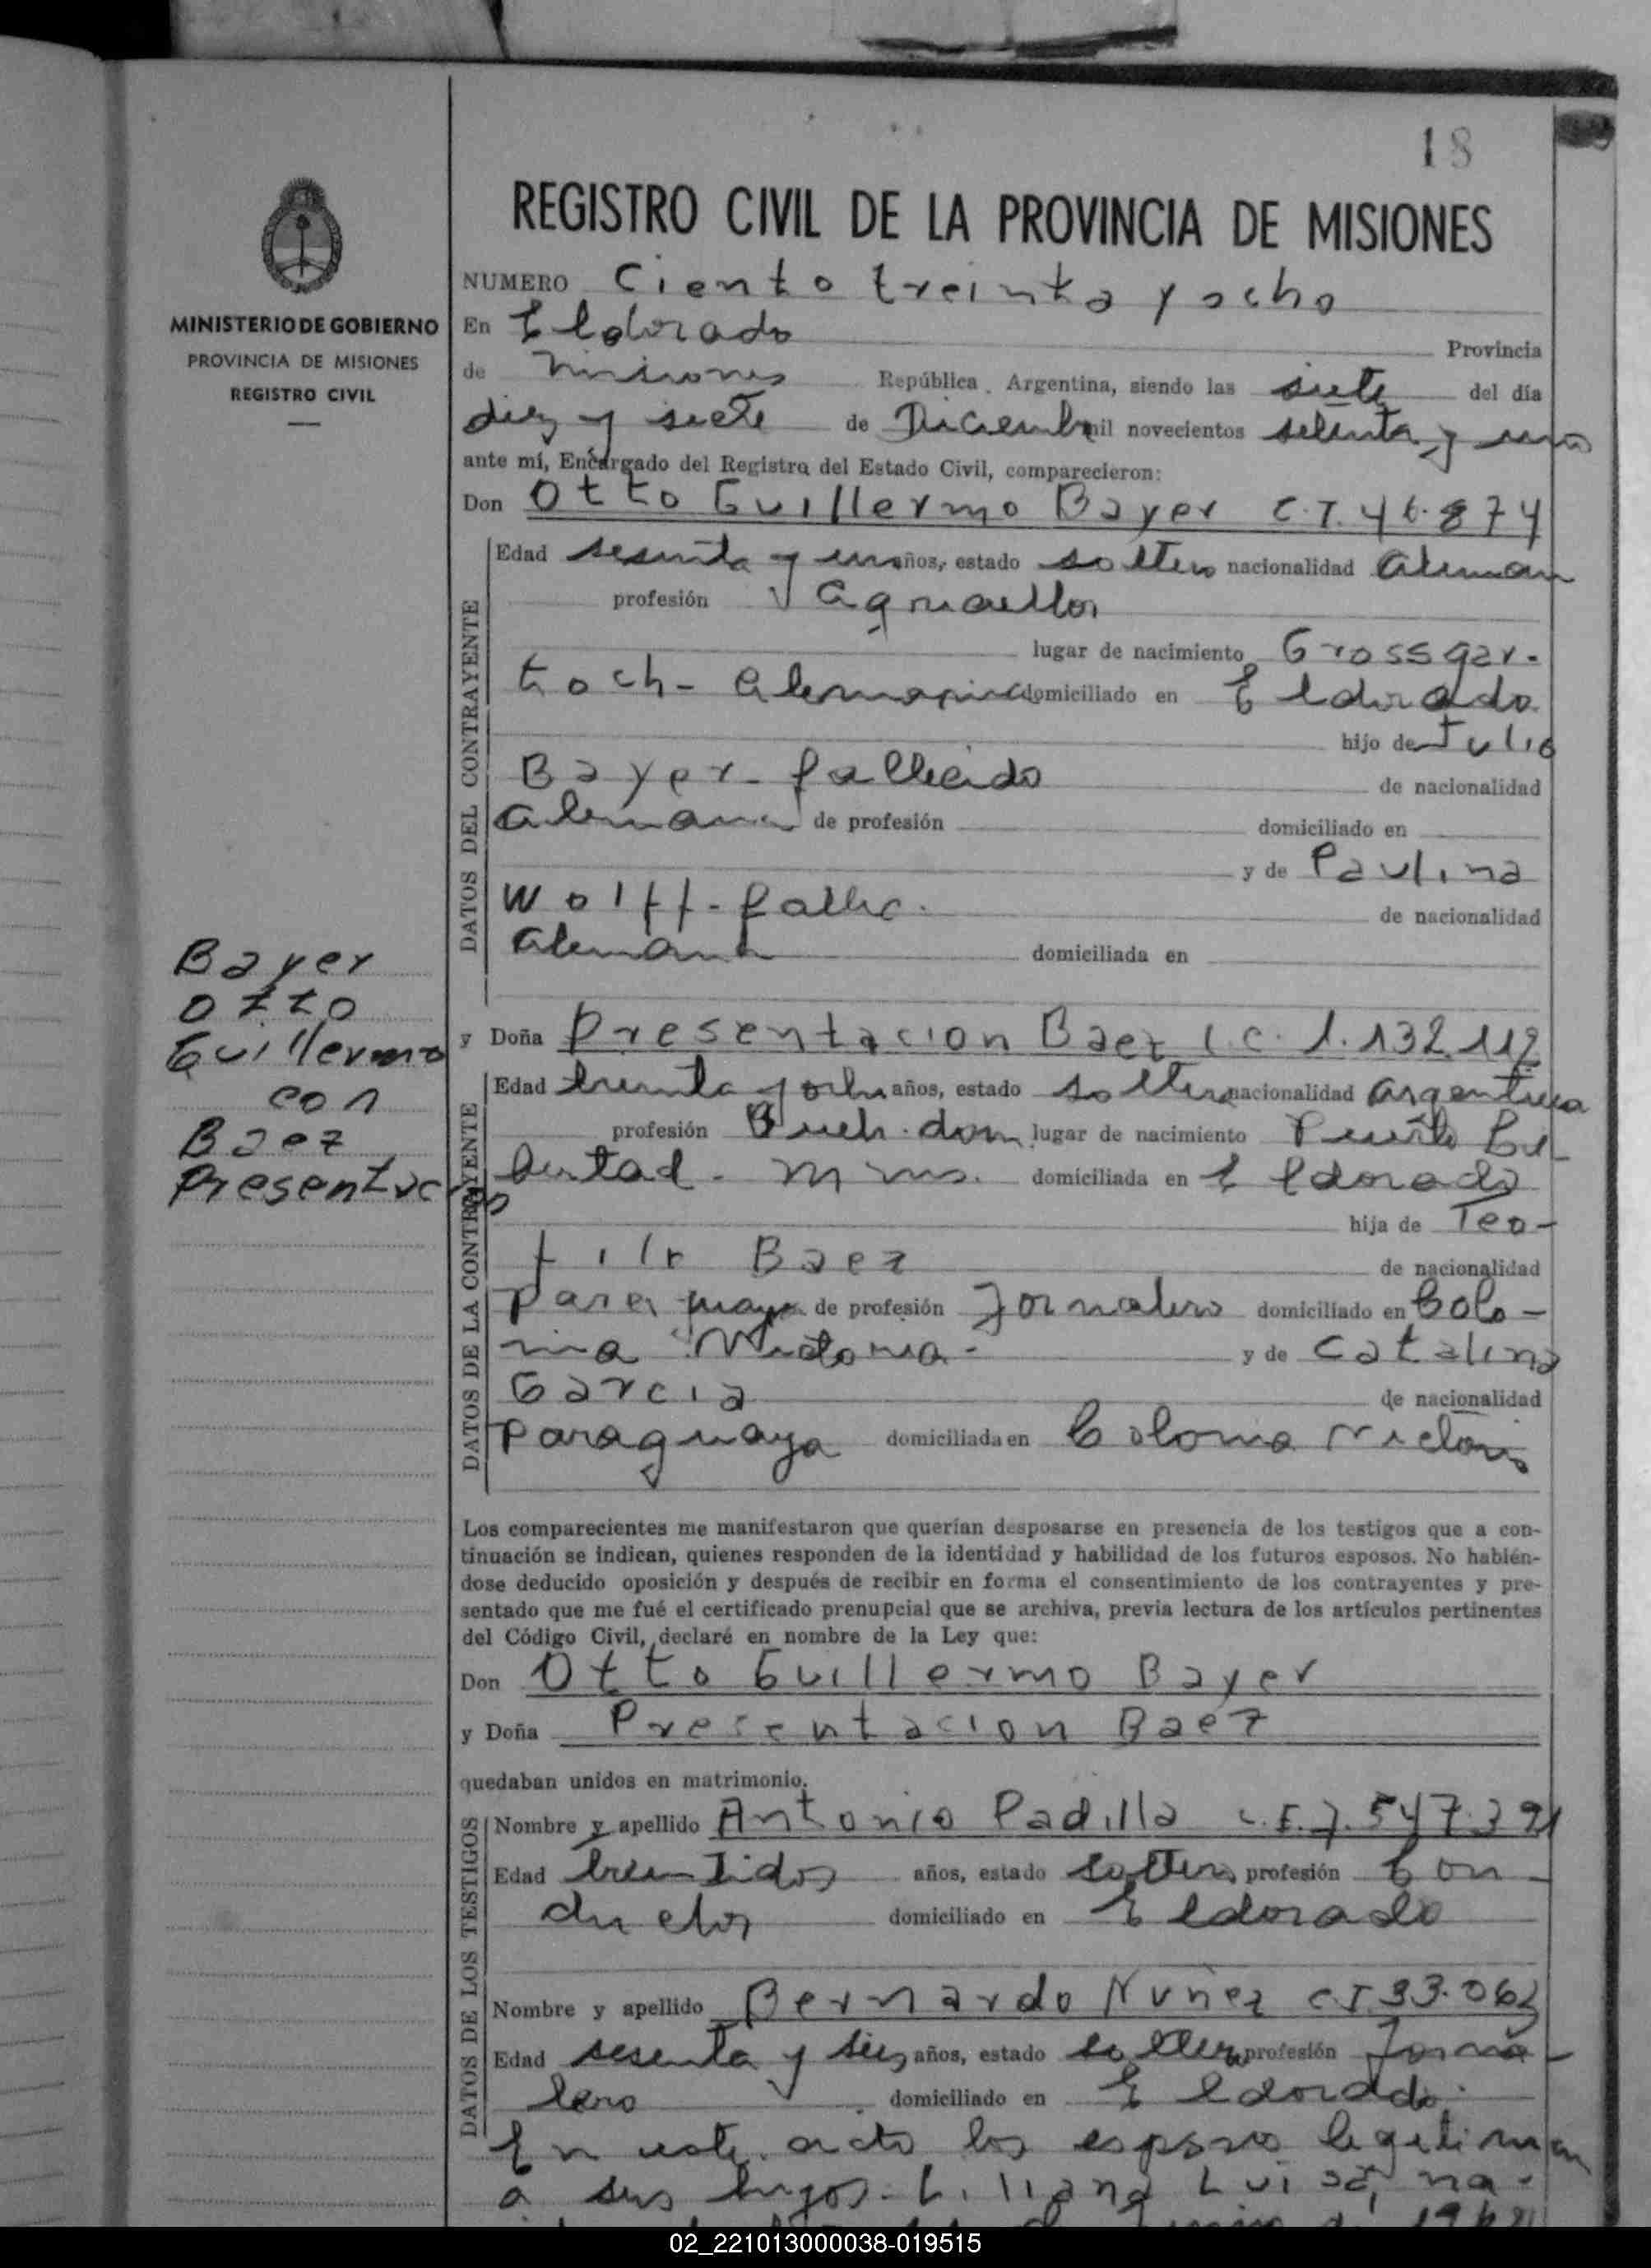 18
REGISTRO CIVIL DE LA PROVINCIA DE MISIONES
MINISTERIO DE GOBIERNO
PROVINCIA DE MISIONES
REGISTRO CIVIL
NUMERO Ciento treinta y ocho
En Eldorado Provincia
de Misiones República Argentina, siendo las siete del día
diez y siete de Diciembre mil novecientos setenta y uno
ante mí, Encargado del Registro del Estado Civil, comparecieron:
Don Otto Guillermo Bayer C.I. 46.874
DATOS DEL CONTRAYENTE
Edad sesenta y uno años, estado soltero nacionalidad Aleman
profesión Agricultor
lugar de nacimiento Grossgar-
toch - Alemania domiciliado en Eldorado
hijo de Julio
Bayer - fallecido de nacionalidad
Alemana de profesión domiciliado en
y de Paulina
Wolff - fallec. de nacionalidad
Alemana domiciliada en
Bayer
Otto
Guillermo
con
Baez
Presentacion
y Doña Presentacion Baez L.C. 1.132.112
DATOS DE LA CONTRAYENTE
Edad treinta y ocho años, estado soltera nacionalidad Argentina
profesión dom. lugar de nacimiento Puerto Li
bertad - Mnes. domiciliada en Eldorado
hija de Teo-
filo Baez de nacionalidad
paraguaya de profesión Jornalero domiciliado en Colo-
nia Victoria - y de Catalina
Garcia de nacionalidad
paraguaya domiciliada en Colonia Victoria
Los comparecientes me manifestaron que querían desposarse en presencia de los testigos que a con-
tinuación se indican, quienes responden de la identidad y habilidad de los futuros esposos. No habién-
dose deducido oposición y después de recibir en forma el consentimiento de los contrayentes y pre-
sentado que me fué el certificado prenupcial que se archiva, previa lectura de los artículos pertinentes
del Código Civil, declaré en nombre de la Ley que:
Don Otto Guillermo Bayer
y Doña Presentacion Baez
quedaban unidos en matrimonio.
DATOS DE LOS TESTIGOS
Nombre y apellido Antonio Padilla L.E. 7.547.391
Edad treintidos años, estado soltero profesión Con-
ductor domiciliado en Eldorado
Nombre y apellido Bernardo Nuñez C.I 33.063
Edad sesenta y seis años, estado soltero profesión Jorna-
lero domiciliado en Eldorado.
En este acto los esposos legitiman
a sus hijos - Liliana Luisa, na-
02_221013000038-019515